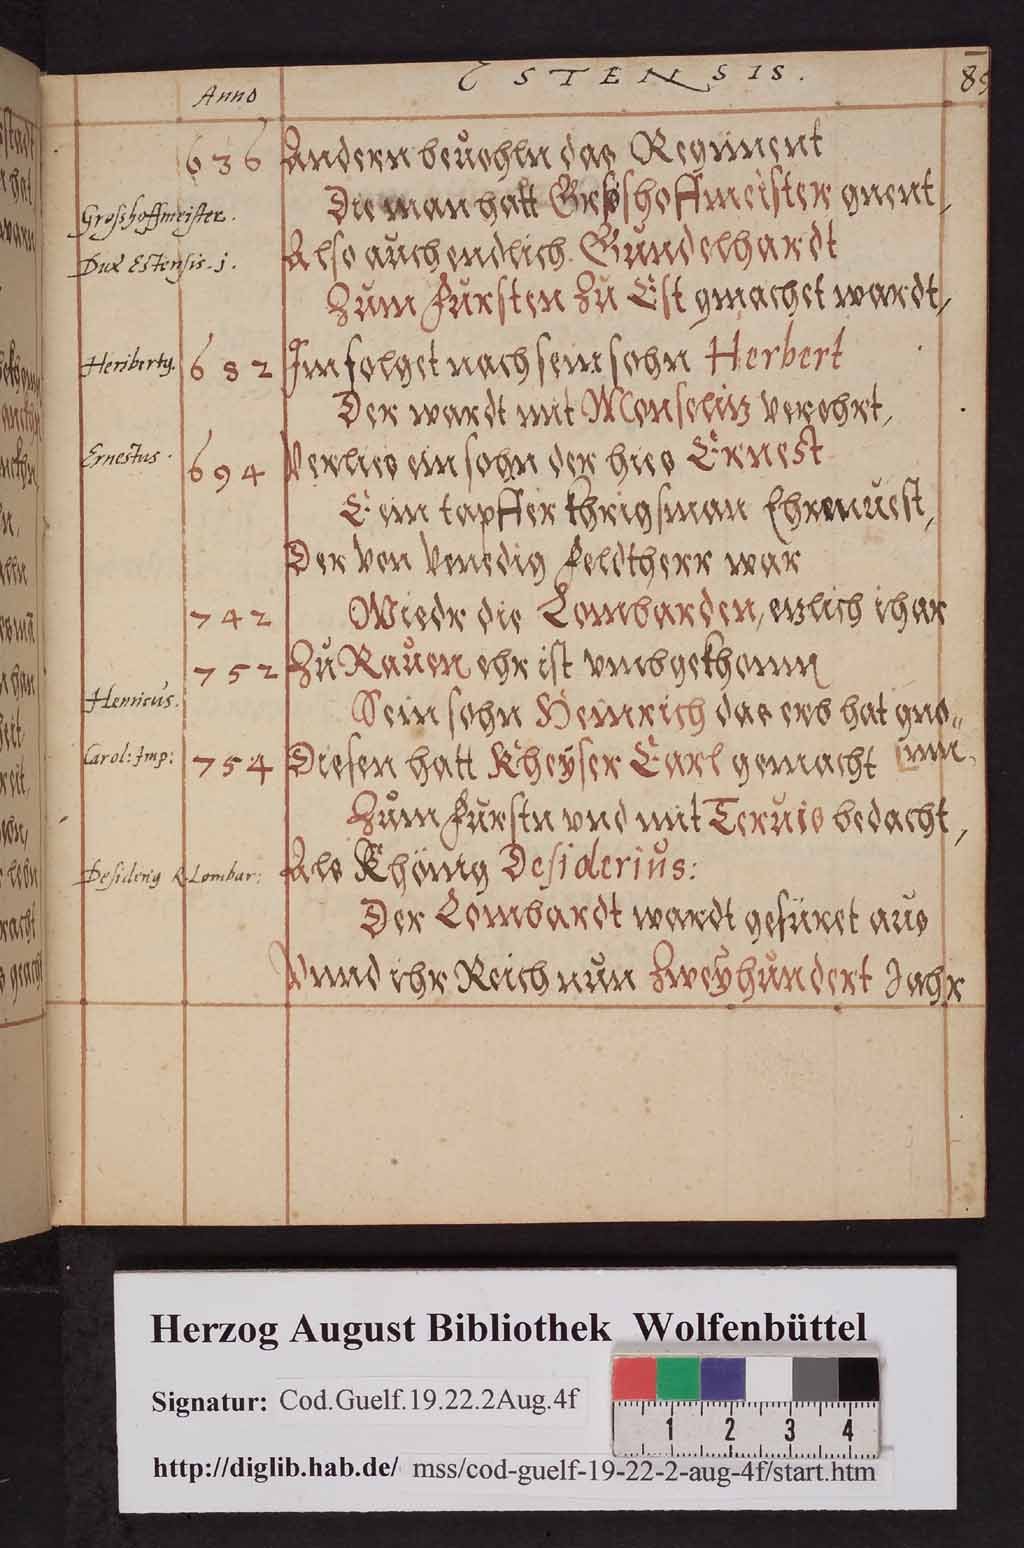 ESTENSIS.
89
Anno
636 Andern beuehln das Regiment
Grosshoffmeister. Die man hatt Groshoffmeister gnent,
Dux Estensis. j. Also auch endlich Gundelhardt
Zum Fursten Zu Est gmachet wardt,
Heriberty. 682 Im folget nach sein sohn Herbert
Der wardt mit Monselitz verehrt,
Ernestus. 694 Verlies ein sohn der hies Ernest
E ein tapffer khrigsman Ehrnuest,
Der von Venedig feldtherr war
742 Wiedr die Lombarden, etzlich ihar
752 Zu Rauen ehr ist vmbgekhomn
Henricus. Sein sohn Heinrich das erb hat gno„
mn.
Carol: Imp: 754 Diesen hatt Kheyser Carl gemacht
Zum Furstn vnd mit Teruis bedacht,
Desiderig R. Lombar: Als Khönig Desiderius:
Der Lombardt wardt gefüret aus
Vnnd ihr Reich nun Zweyhundert Jahr
Herzog August Bibliothek Wolfenbüttel
Signatur: Cod.Guelf.19.22.2Aug.4f
1 2 3 4
http://diglib.hab.de/ mss/cod-guelf-19-22-2-aug-4f/start.htm